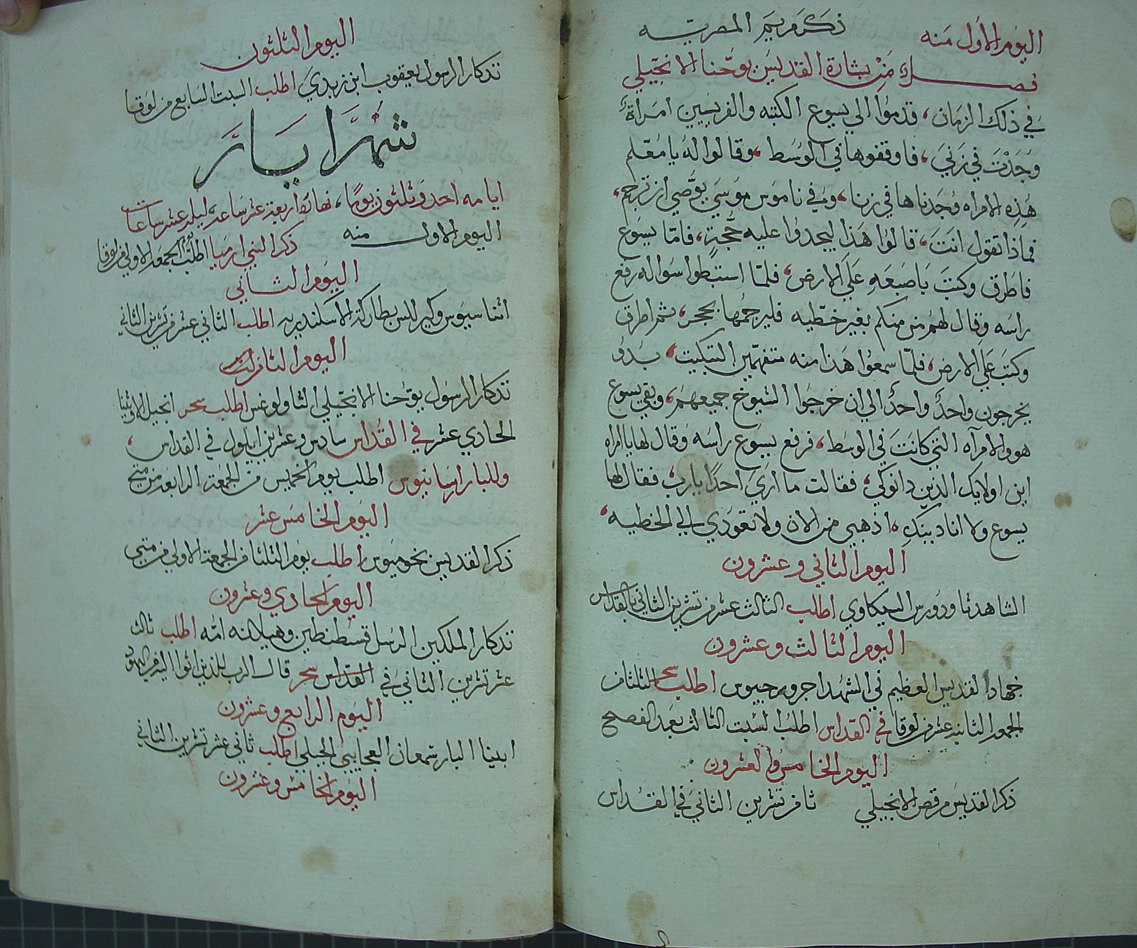 اليوم الاول منه ذكر مريم المصريه
فصل من بشارة القديس يوحنا الانجيلي
في ذلك الزمان، قدموا الي يسوع الكتبه والفريسيين امراة
وجدت في زني، فاوقفوها في الوسط، وقالوا له يا معلم
هذه الامراه وجدناها في زنا، وفي ناموس موسي يوصي ان ترجم،
فماذا تقول انت، قالوا هذا ليجدوا عليه حجة، فاما يسوع
فاطرق وكتب باصبعه علي الارض، فلما استبطوا سواله رفع
راسه وقال لهم من منكم بغير خطيه فليرجمها بحجر، ثم اطرق
وكتب علي الارض، فلما سمعوا هذا منه متفهمين التبكيت، بدو
يخرجون واحدا واحدا الي ان خرجوا الشيوخ جميعهم، وبقي يسوع
هو والامرآه التي كانت في الوسط، فرفع يسوع راسه وقال لها يا امراه
اين اولايك الذين دانوكي، فقالت ما اري احدا يا رب، فقال لها
يسوع ولا انا دينك، اذهبي من الان ولا تعودي الي الخطيه،
اليوم الثاني وعشرون
الشاهد تاودورس السيكاوي اطلب الثالث عشر من تشرين الثاني بالقداس
اليوم الثالث وعشرون
جهاد القديس العظيم في الشهدا جرورجيوس اطلب سحر الثلثا من
الجمعه الثانيه عشر من لوقا في القداس اطلب السبت الثالث بعد الفصح
اليوم الخامس والعشرون
ذكر القديس مرقص الانجيلي ثامن تشرين الثاني في القداس
اليوم الثلثون
تدكار الرسول يعقوب ابن زبدي اطلب السبت السابع من لوقا
شهر ايار
ايامه احد وثلثون يوما، نهاره اربعة عشر ساعة، ليله عشر ساعات
اليوم الاول منه ذكر النبي ارميا اطلب الجمعه الاولي من لوقا
اليوم الثاني
اثناسيوس وكيرللس بطاركة الاسكندريه اطلب الثاني عشر من تشرين الثاني
اليوم الثامن
تدكار الرسول يوحنا الانجيلي الثاولوغس اطلب سحر انجيل الاوثينا
الحادي عشر في القداس سادس وعشرين ايلول في القداس،
وللبار ارسانيوس اطلب يوم الخميس من الجمعة الرابعه من متي
اليوم الخامس عشر
ذكر القديس بخوميوس اطلب يوم الثلثا من الجمعة الاولي من متي
اليوم الحادي وعشرون
تدكار الملكين الرسل قسطنطين وهيلانه امه اطلب ثالث
عشر تشرين الثاني في القداس سحر قال الرب للذين اتوا اليه من اليهود
اليوم الرابع وعشرون
ابينا البار سمعان العجايبي الجبلي اطلب ثاني عشر تشرين الثاني
اليوم الخامس وعشرون